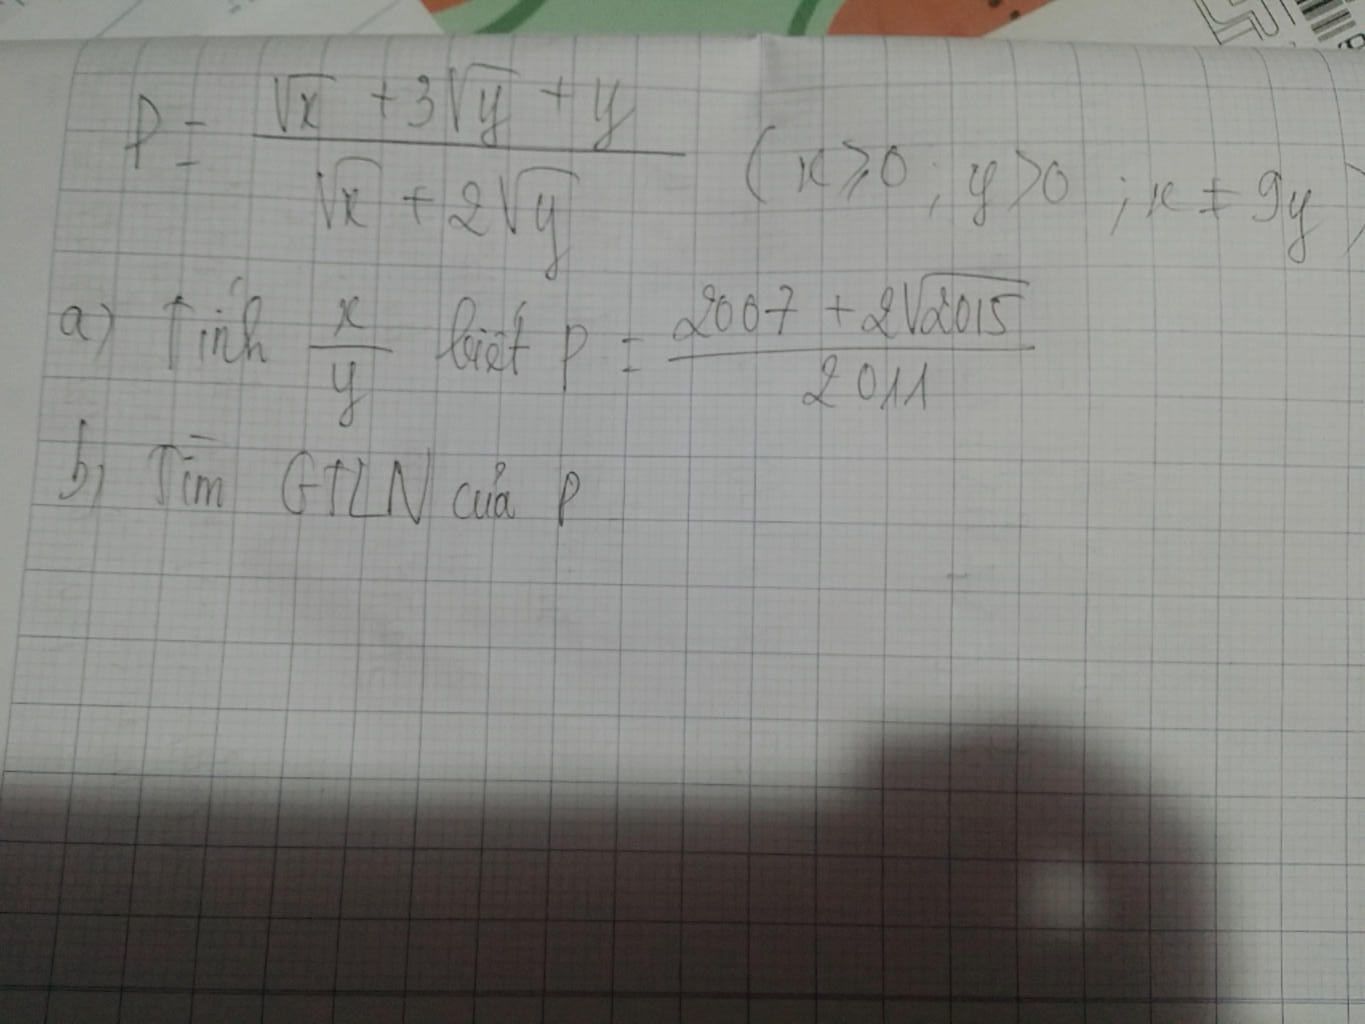 P = \frac{\sqrt{x} + 3\sqrt{y} + y}{\sqrt{x} + 2\sqrt{y}} (x ≥ 0 ; y > 0 ; x ≠ 9y)
a) Tính \frac{x}{y} biết P = \frac{2007 + 2\sqrt{2015}}{2011}
b) Tìm GTLN của P